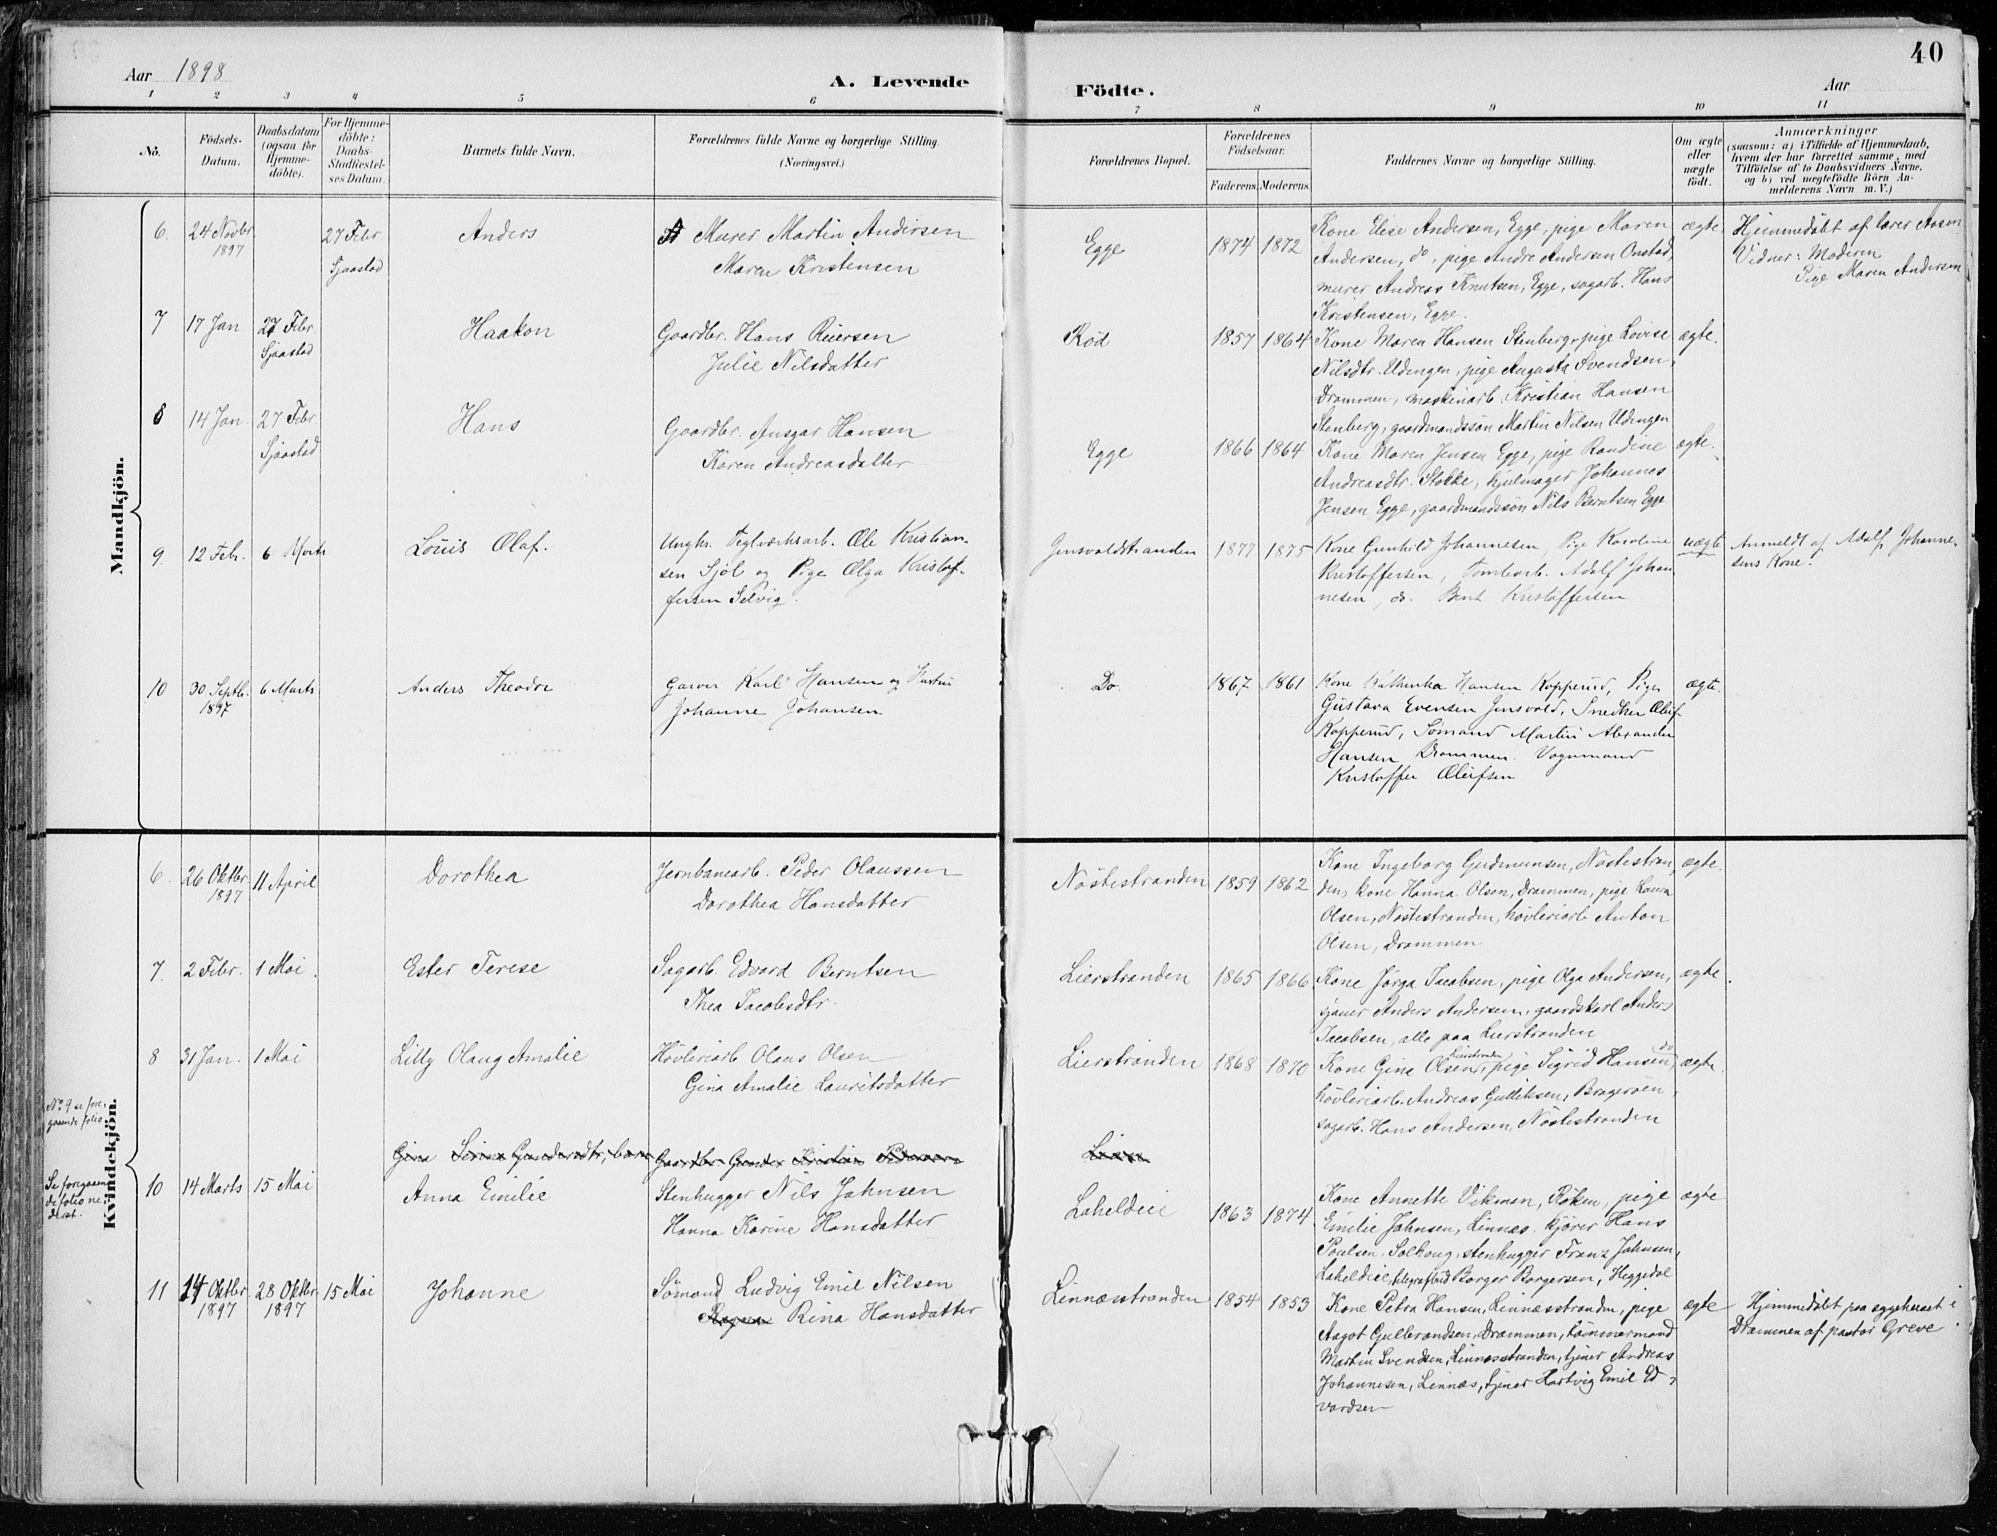 40
Aar 1898
A. Levende Födte.
Aar
1 2 3 4 5 6 7 8 9 10 11
No. Födsels-Datum. Daabsdatum (ogsaa for Hjemme-döbte). For Hjemme-döbte: Daabs-Stadfæstel-ses Datum. Barnets fulde Navn. Forældrenes fulde Navne og borgerlige Stilling. (Næringsvei.)
Forældrenes Bopæl. Forældrenes Födselsaar. Faderens. Moderens. Faddernes Navne og borgerlige Stilling. Om ægte eller uægte födt.
Anmærkninger
(saasom: a) i Tilfælde af Hjemmedaab,
hvem der har forrettet samme, med
Tilföielse af to Daabsvidners Navne,
og b) ved uægtefödte Börn An-
melderens Navn m. V.)
Mandkjön.
6. 24 Novbr 1897 27 Febr Sjaastad Anders
Murer Martin Andersen
Maren Kristensen
Egge 1874 1872
Kone Elise Andersen, Egge, pige Maren
Andersen, do, pige Andre Andersen Onstad,
murer Andreas Knutsen, Egge, sagarb. Hans
Kristensen, Egge.
ægte.
Hjemmedöbt af lærer Ansen
Vidner: Moderen
Pige Maren Andersen
7 17 Jan 27 Febr. Sjaastad Haakon
Gaardbr. Hans Reiersen
Julie Nilsdatter
Röd 1857 1864
Kone Maren Hansen Stenberg, pige Lovise
Nilsdtr. Udengen, pige Augusta Svendsen,
Drammen, maskinarb. Kristian Hansen
Stenberg, gaardmandssön Martin Nilsen Udengen
ægte.
8 14 Jan. 27 Febr. Sjaastad Hans
Gaardbr. Ansgar Hansen
Karen Andreasdatter
Egge 1866 1864
Kone Maren Jensen Egge, pige Randine
Andreasdtr. Stokke, hjulmager Johannes
Jensen Egge, gaardmandssön Nils Berntsen Egge
ægte.
9. 12 Febr. 6 Marts Louis Olaf.
Ungk. Teglværksarb. Ole Kristian-
sen Sjöl og Pige Olga Kristof-
fersen Selvig.
Gunsvoldstranden 1877 1875
Kone Gunhild Johannesen, Pige Karoline
Kristoffersen, Tomtearb. Adolf Johan-
nesen, do. Bent Kristoffersen
uægte
Anmeldt af Adolf Johanne-
sens Kone.
10 30 Septb. 1897 6 Marts Anders Theodor
Garver Karl Hansen og Hustru
Johanne Johansen
Do. 1867 1861
Kone Kathinka Hansen Kopperud, Pige
Gustava Evensen Ginsvold, Snedker Oluf
Kopperud, Sømand Martin Alexander
Hansen Drammen. Vognmand
Kristoffer Olufsen
ægte.
Kvindekjön.
6. 26 Oktbr. 1897 11 April Dorothea
Jernbanearb. Peder Olaussen
Dorothea Hansdatter
Nöstestranden 1859 1862
Kone Ingeborg Gudmunsen, Nöstestran-
den, kone Hanna Olsen, Drammen, pige Laura
Olsen, Nöstestranden, hövleriarb Anton
Olsen, Drammen
ægte.
7. 2 Febr. 1 Mai. Ester Terese
Sagarb. Edvard Berntsen
Thea Jacobsdtr.
Lierstranden 1865 1866
Kone Jörga Jacobsen, pige Olga Andersen,
sjauer Anders Andersen, gaardskarl Anders
Jacobsen, alle paa Lierstranden
ægte.
8 31 Jan. 1 Mai Lilly Olaug Amalie
Hövleriarb Olaus Olsen
Gina Amalie Lauritsdatter
Lierstranden 1868 1870
Kone Gina Olsen, Lierstranden, pige Sigrid Hansen, do
hövleriarb. Andreas Gulliksen, Brageroen,
sagarb. Hans Andersen, Nöstestranden
ægte.
No 9 se fore-
gaaende folio
Gina Serine Gundersdtr, barn Gaardbr Gunder Kristian Lien
Se foregaaen-
de folio ne-
derst.
10 14 Marts 15 Mai Anna Emilie
Stenhugger Nils Jahnsen
Hanna Karine Hansdatter
Laheldeie 1863 1874
Kone Annette Vikman, Röken, pige
Emilie Jahnsen, Linnæs, kjörer Hans
Poulsen, Solhoug, stenhugger Franz Jahnsen,
Laheldeie, telegrafbud Borger Borgersen, Heggedal
ægte
11 14 Oktbr 1897 28 Oktbr. 1897 15 Mai Johanne
Sömand Ludvig Emil Nilsen
Ragna Rina Hansdatter
Linnæsstranden 1854 1853
Kone Petra Hansen, Linnæsstranden, pige
Aagot Gulbrandsen, Drammen, tömmermand
Martin Svendsen, Linnæsstranden, tjener Andreas
Johannesen, Linnæs, tjener Hartvig Emil Ed-
vardsen
ægte
Hjemmedöbt paa sygehuset i
Drammen af pastor Greve